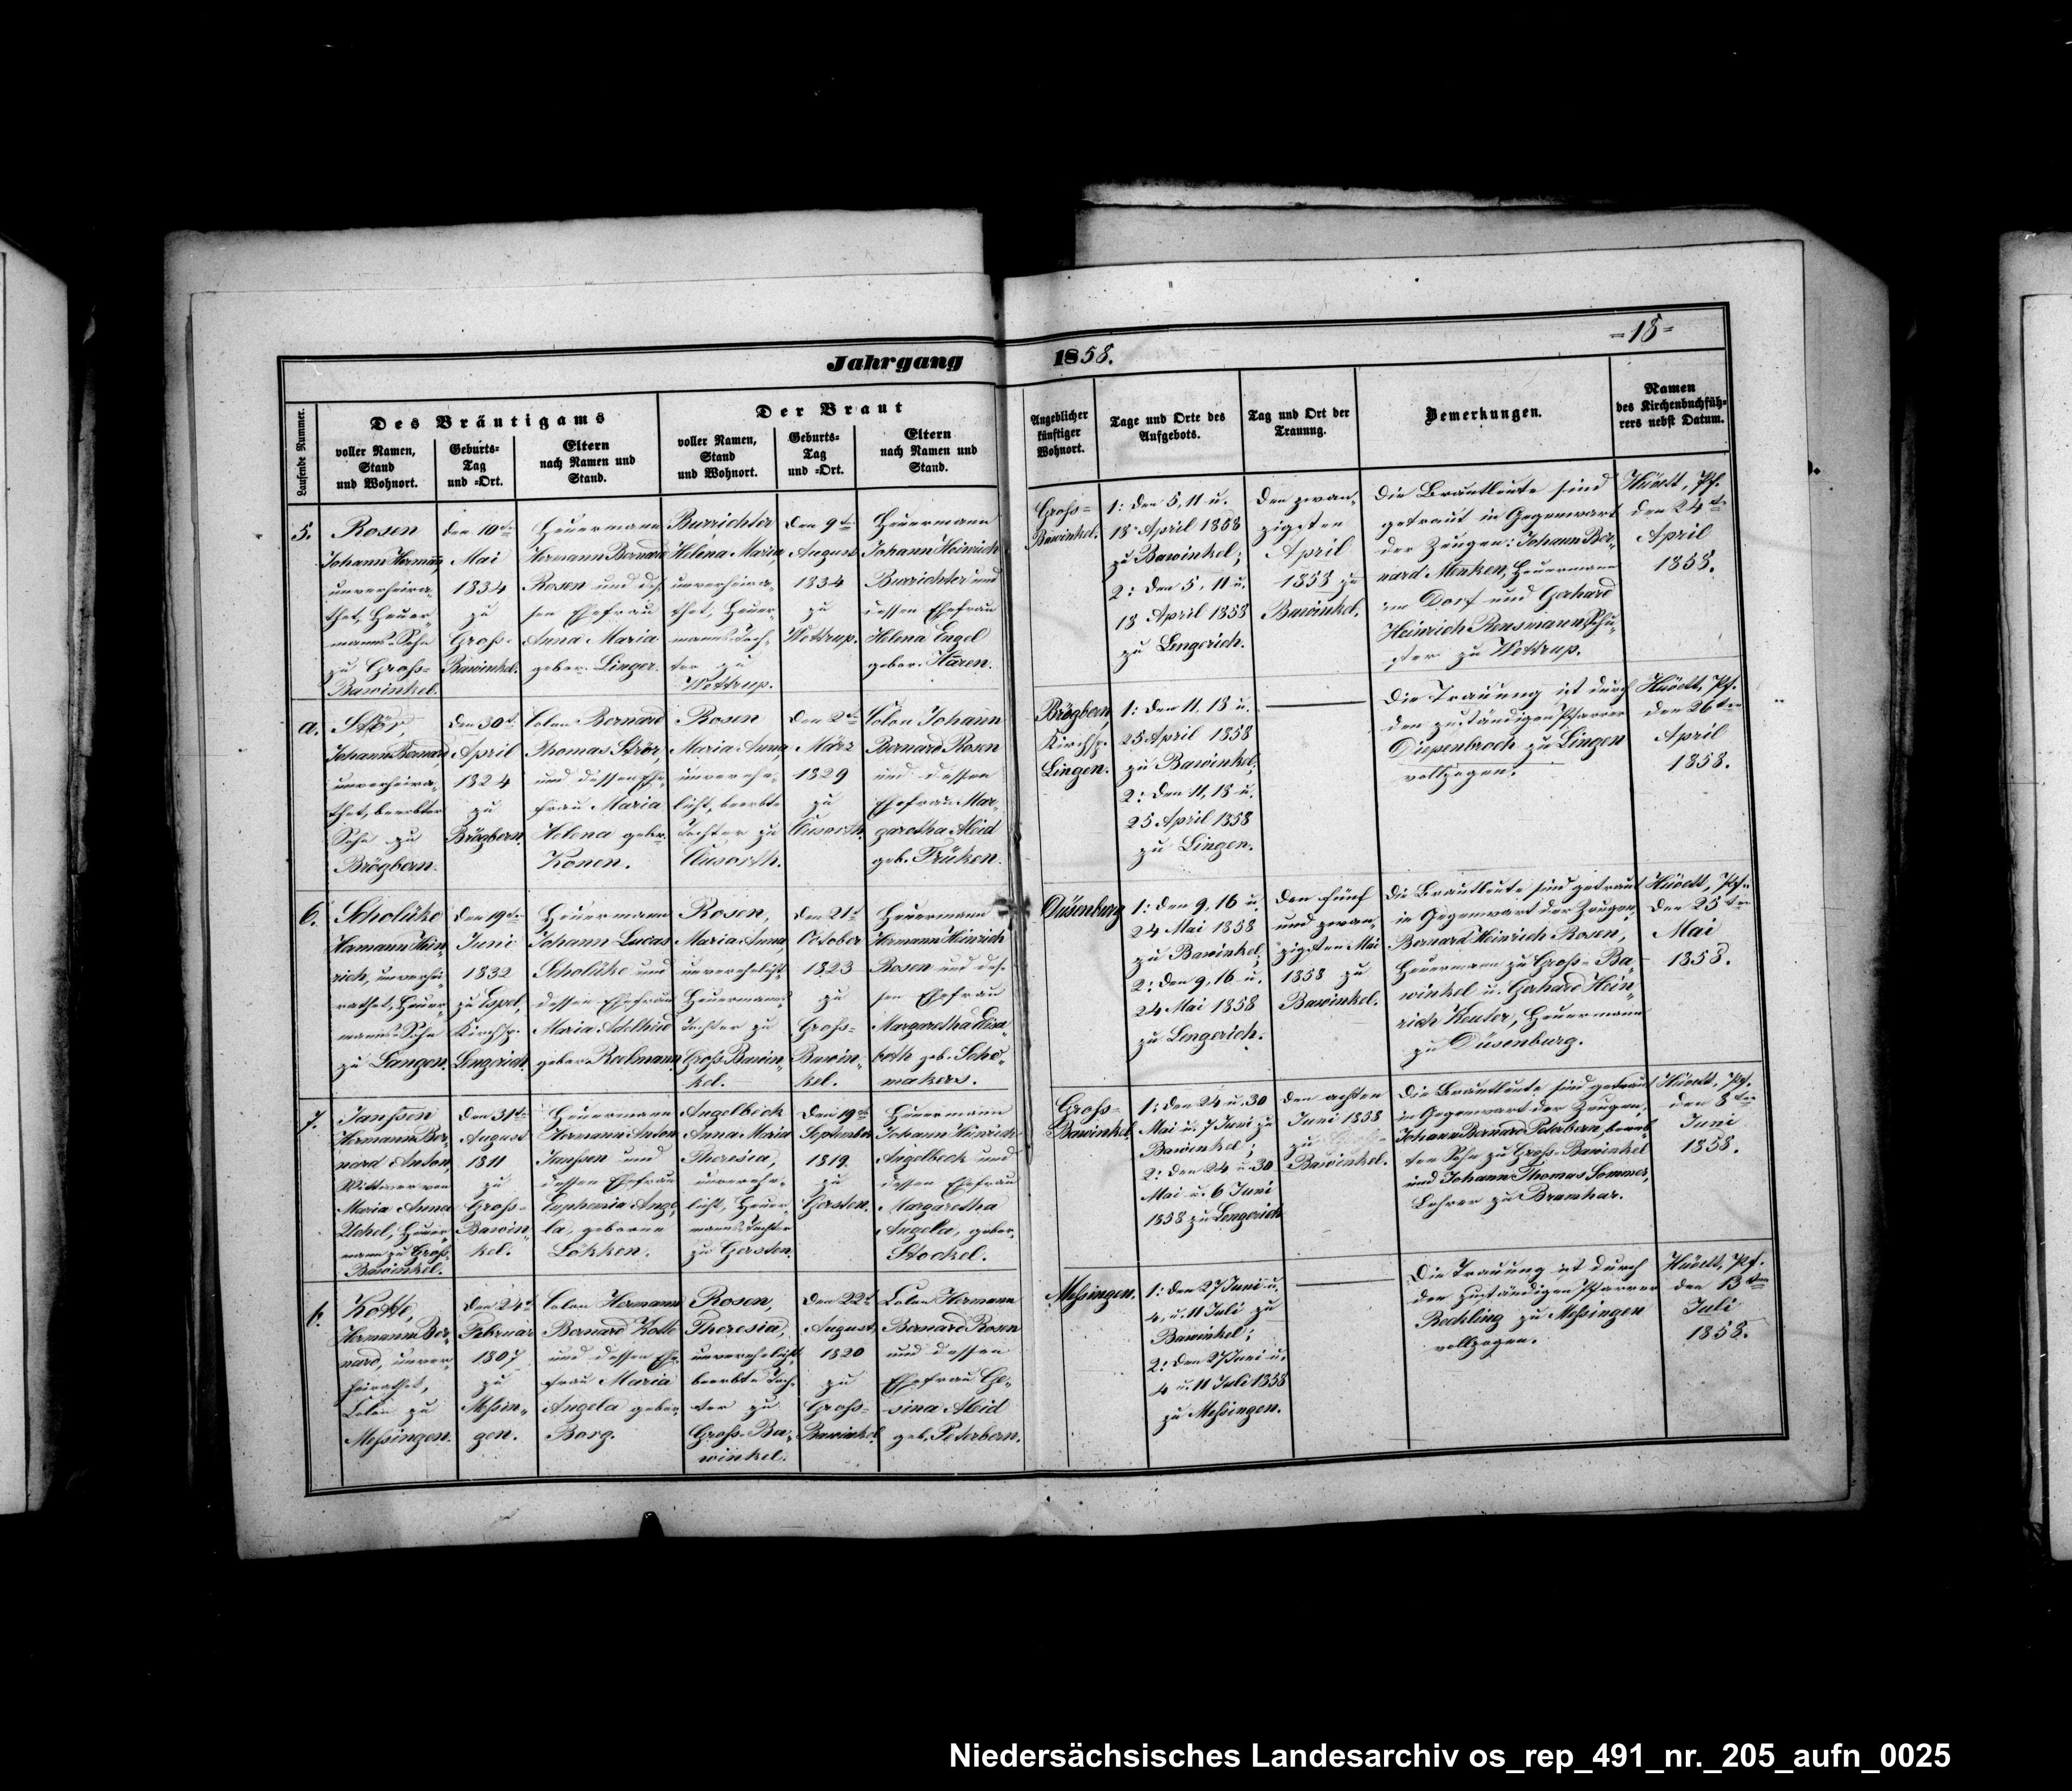 - 18 -
Jahrgang 1858.
Laufende Nummer.
Des Bräutigams
voller Namen,
Stand
und Wohnort.
Geburts-
Tag
und -Ort.
Eltern
nach Namen und
Stand.
Der Braut
voller Namen,
Stand
und Wohnort.
Geburts-
Tag
und -Ort.
Eltern
nach Namen und
Stand.
Angeblicher
künftiger
Wohnort.
Tage und Orte des
Aufgebots.
Tag und Ort der
Trauung.
Bemerkungen.
Namen
des Kirchenbuchfüh-
rers nebst Datum.
5.
Rosen
Johann Hermann,
unverheira-
thet, Heuer-
manns-Sohn
zu Gross-
Bawinkel.
Den 10ten
Mai
1834
zu
Gross-
Bawinkel.
Heuermann
Hermann Bernard
Rosen und des-
sen Ehefrau
Anna Maria
gebor. Linger.
Burrichter
Helena Maria,
unverheira-
thet, Heuer-
manns-Toch-
ter zu
Wettrup.
Den 9ten
August
1834
zu
Wettrup.
Heuermann
Johann Heinrich
Burrichter und
dessen Ehefrau
Helena Engel
gebor. Haren.
Gross-
Bawinkel.
1: Den 5, 11 u.
18 April 1858
zu Bawinkel;
2: Den 5, 11 u.
18 April 1858
zu Lengerich.
Den zwan-
zigsten
April
1858 zu
Bawinkel.
Die Brautleute sind
getraut in Gegenwart
der Zeugen: Johann Ber-
nard Menken, Heuermann
im Dorf und Gerhard
Heinrich Rensmann, Schu-
ster zu Wettrup.
Hüvett, Pf.
den 24ten
April
1858.
a.
Strör,
Johann Bernard
unverheira-
thet, beerbter
Sohn zu
Brögbern.
Den 30t.
April
1824
zu
Brögbern.
Colon Bernard
Thomas Strör,
und dessen Ehe-
frau Maria
Helena gebor.
Konen.
Rosen
Maria Anna,
unverehe-
licht, beerbte
Tochter zu
Clusorth.
Den 2ten
März
1829
zu
Clusorth.
Colon Johann
Bernard Rosen
und dessen
Ehefrau Mar-
garetha Aleid
geb. Früken.
Brögbern,
Kirchsp.
Lingen.
1: Den 11, 18 u.
25 April 1858
zu Bawinkel;
2: Den 11, 18 u.
25 April 1858
zu Lingen.
Die Trauung ist durch
den zuständigen Pfarrer
Diepenbroch zu Lingen
vollzogen.
Hüvett, Pf.
den 26ten
April
1858.
6.
Scholüke
Hermann Hein-
rich, unverhei-
rathet, Heuer-
manns-Sohn
zu Langen.
Den 19ten
Juni
1832
zu Espel,
Kirchsp.
Lengerich.
Heuermann
Johann Lucas
Scholüke und
dessen Ehefrau
Maria Adelheid
gebor. Roelmann.
Rosen,
Maria Anna,
unverehelicht
Heuermanns
Tochter zu
Gross Bawin-
kel.
Den 21t.
October
1823
zu
Gross-
Bawin-
kel.
Heuermann
Hermann Heinrich
Rosen und des-
sen Ehefrau
Margaretha Elisa-
beth geb. Scho-
makers.
Düsenburg
1: Den 9, 16 u.
24 Mai 1858
zu Bawinkel;
2: Den 9, 16 u.
24 Mai 1858
zu Lengerich.
Den fünf
und zwan-
zigsten Mai
1858 zu
Bawinkel.
Die Brautleute sind getraut
in Gegenwart der Zeugen,
Bernard Heinrich Rosen,
Heuermann zu Gross-Ba-
winkel u. Gerhard Hein-
rich Keuter, Heuermann
zu Düsenburg.
Hüvett, Pf.
Den 25ten
Mai
1858.
7.
Janssen
Hermann Ber-
nard Anton,
Wittwer von
Maria Anna
Uchel, Heuer-
mann zu Gross-
Bawinkel.
Den 31ten
August
1811
zu
Gross-
Bawin-
kel.
Heuermann
Hermann Anton
Janssen und
dessen Ehefrau
Euphemia Ange-
la, geborne
Lökken.
Angelbeck
Anna Maria
Theresia,
unverehe-
licht, Heuer-
manns Tochter
zu Gersten.
Den 19ten
September
1819
zu
Gersten.
Heuermann
Johann Heinrich
Angelbeck und
dessen Ehefrau
Margaretha
Angela, gebor.
Stockel.
Gross-
Bawinkel
1: Den 24 u. 30
Mai u. 7 Juni zu
Bawinkel;
2: Den 24 u. 30
Mai u. 6 Juni
1858 zu Lengerich
Den achten
Juni 1858
zu
Bawinkel.
Die Brautleute sind getraut
in Gegenwart der Zeugen,
Johann Bernard Peterbern, beerb-
ter Sohn zu Gross-Bawinkel
und Johann Thomas Sommer,
Lehrer zu Bramhar.
Hüvett, Pf.
den 8ten
Juni
1858.
b.
Kotte,
Hermann Ber-
nard, unver-
heirathet,
Colon zu
Messingen.
Den 24t.
Februar
1807
zu
Messin-
gen.
Colon Hermann
Bernard Kotte
und dessen Ehe-
frau Maria
Angela gebor.
Borg.
Rosen,
Theresia,
unverehelicht
beerbte Toch-
ter zu
Gross-Ba-
winkel.
Den 22t.
August
1820
zu
Gross-
Bawinkel
Colon Hermann
Bernard Rosen
und dessen
Ehefrau Ge-
sina Aleid
geb. Peterbern.
Messingen.
1: Den 27 Juni u.
4, u. 11 Juli zu
Bawinkel;
2: Den 27 Juni u.
4 u. 11 Juli 1858
zu Messingen.
Die Trauung ist durch
den zuständigen Pfarrer
Rechling zu Messingen
vollzogen.
Hüvett, Pf.
den 13ten
Juli
1858.
Niedersächsisches Landesarchiv os_rep_491_nr._205_aufn_0025